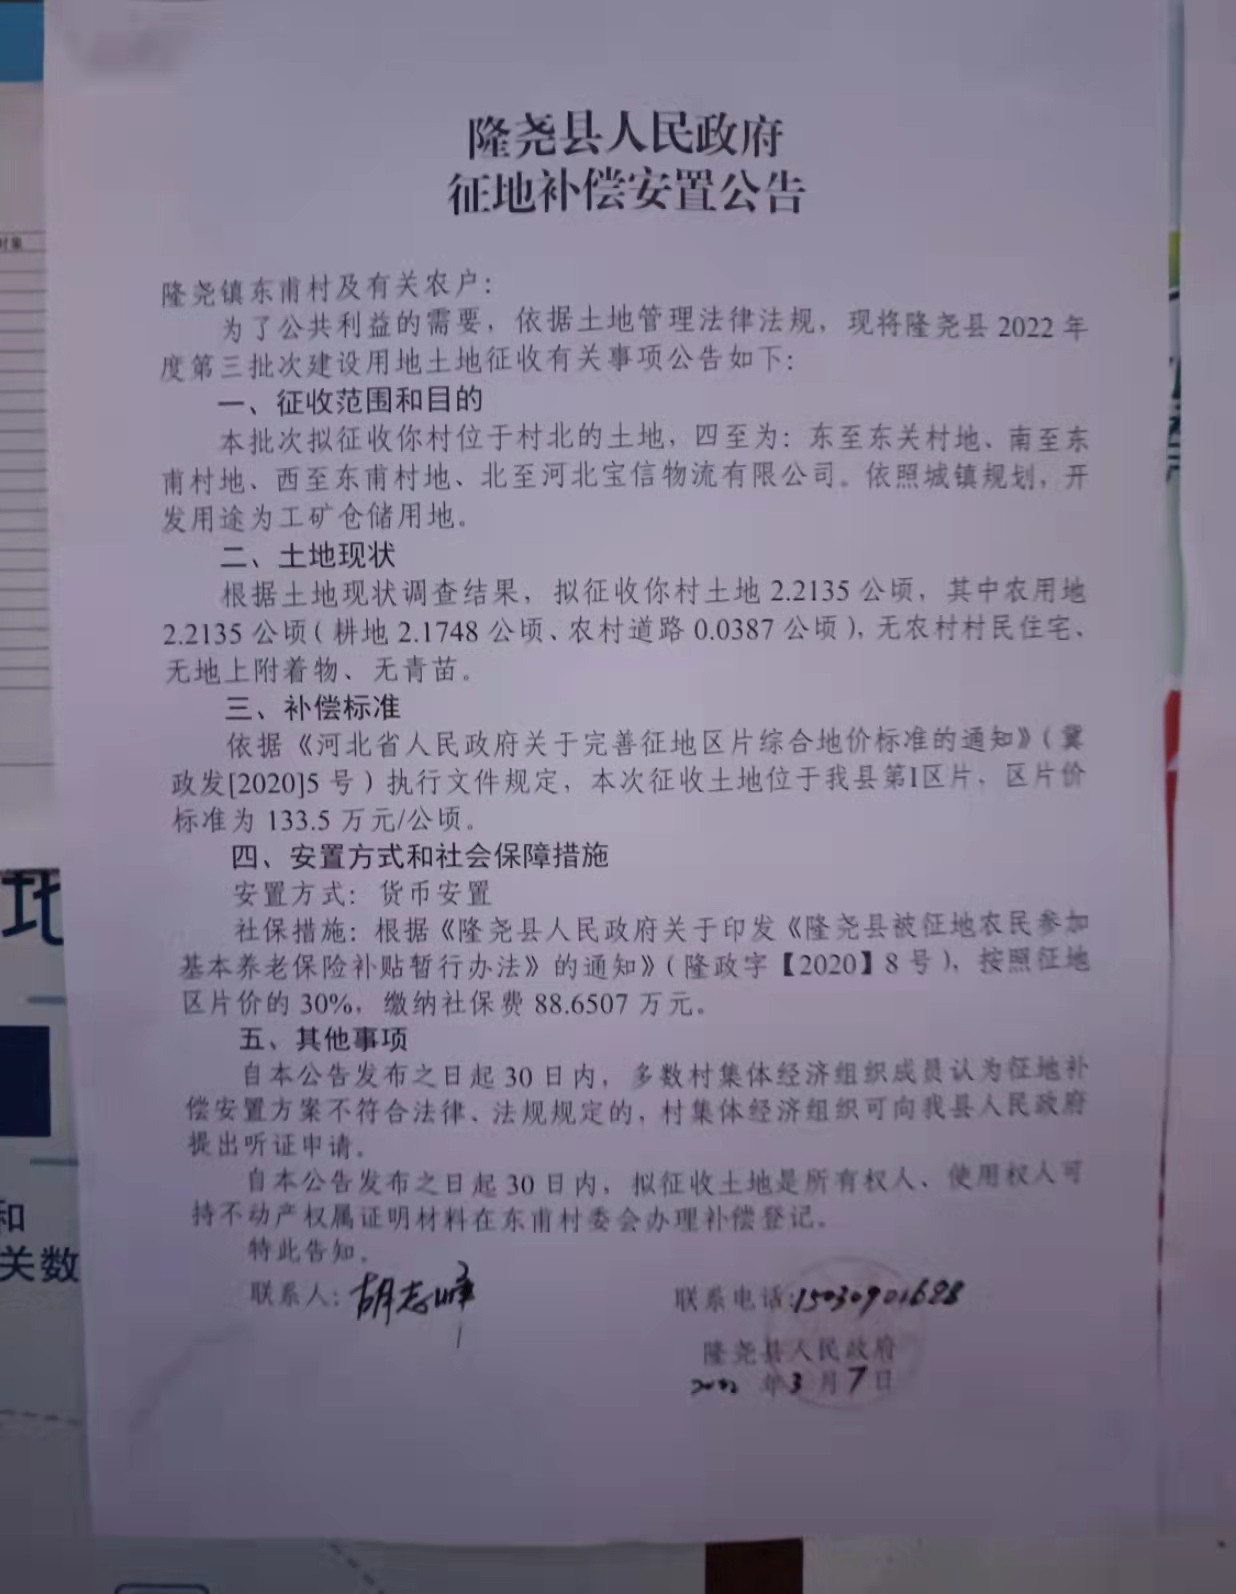 对象
地
和
关数
隆尧县人民政府
征地补偿安置公告
隆尧镇东甫村及有关农户：
为了公共利益的需要，依据土地管理法律法规，现将隆尧县 2022 年
度第三批次建设用地土地征收有关事项公告如下：
一、征收范围和目的
本批次拟征收你村位于村北的土地，四至为：东至东关村地、南至东
甫村地、西至东甫村地、北至河北宝信物流有限公司。依照城镇规划，开
发用途为工矿仓储用地。
二、土地现状
根据土地现状调查结果，拟征收你村土地 2.2135 公顷，其中农用地
2.2135 公顷（耕地 2.1748 公顷、农村道路 0.0387 公顷），无农村村民住宅、
无地上附着物、无青苗。
三、补偿标准
依据《河北省人民政府关于完善征地区片综合地价标准的通知》（冀
政发[2020]5 号）执行文件规定，本次征收土地位于我县第1区片，区片价
标准为 133.5 万元/公顷。
四、安置方式和社会保障措施
安置方式：货币安置
社保措施：根据《隆尧县人民政府关于印发《隆尧县被征地农民参加
基本养老保险补贴暂行办法》的通知》（隆政字【2020】8 号），按照征地
区片价的 30%，缴纳社保费 88.6507 万元。
五、其他事项
自本公告发布之日起 30 日内，多数村集体经济组织成员认为征地补
偿安置方案不符合法律、法规规定的，村集体经济组织可向我县人民政府
提出听证申请。
自本公告发布之日起 30 日内，拟征收土地是所有权人、使用权人可
持不动产权属证明材料在东甫村委会办理补偿登记。
特此告知。
联系人：胡志峰
联系电话：15030901688
隆尧县人民政府
2022 年 3 月 7 日